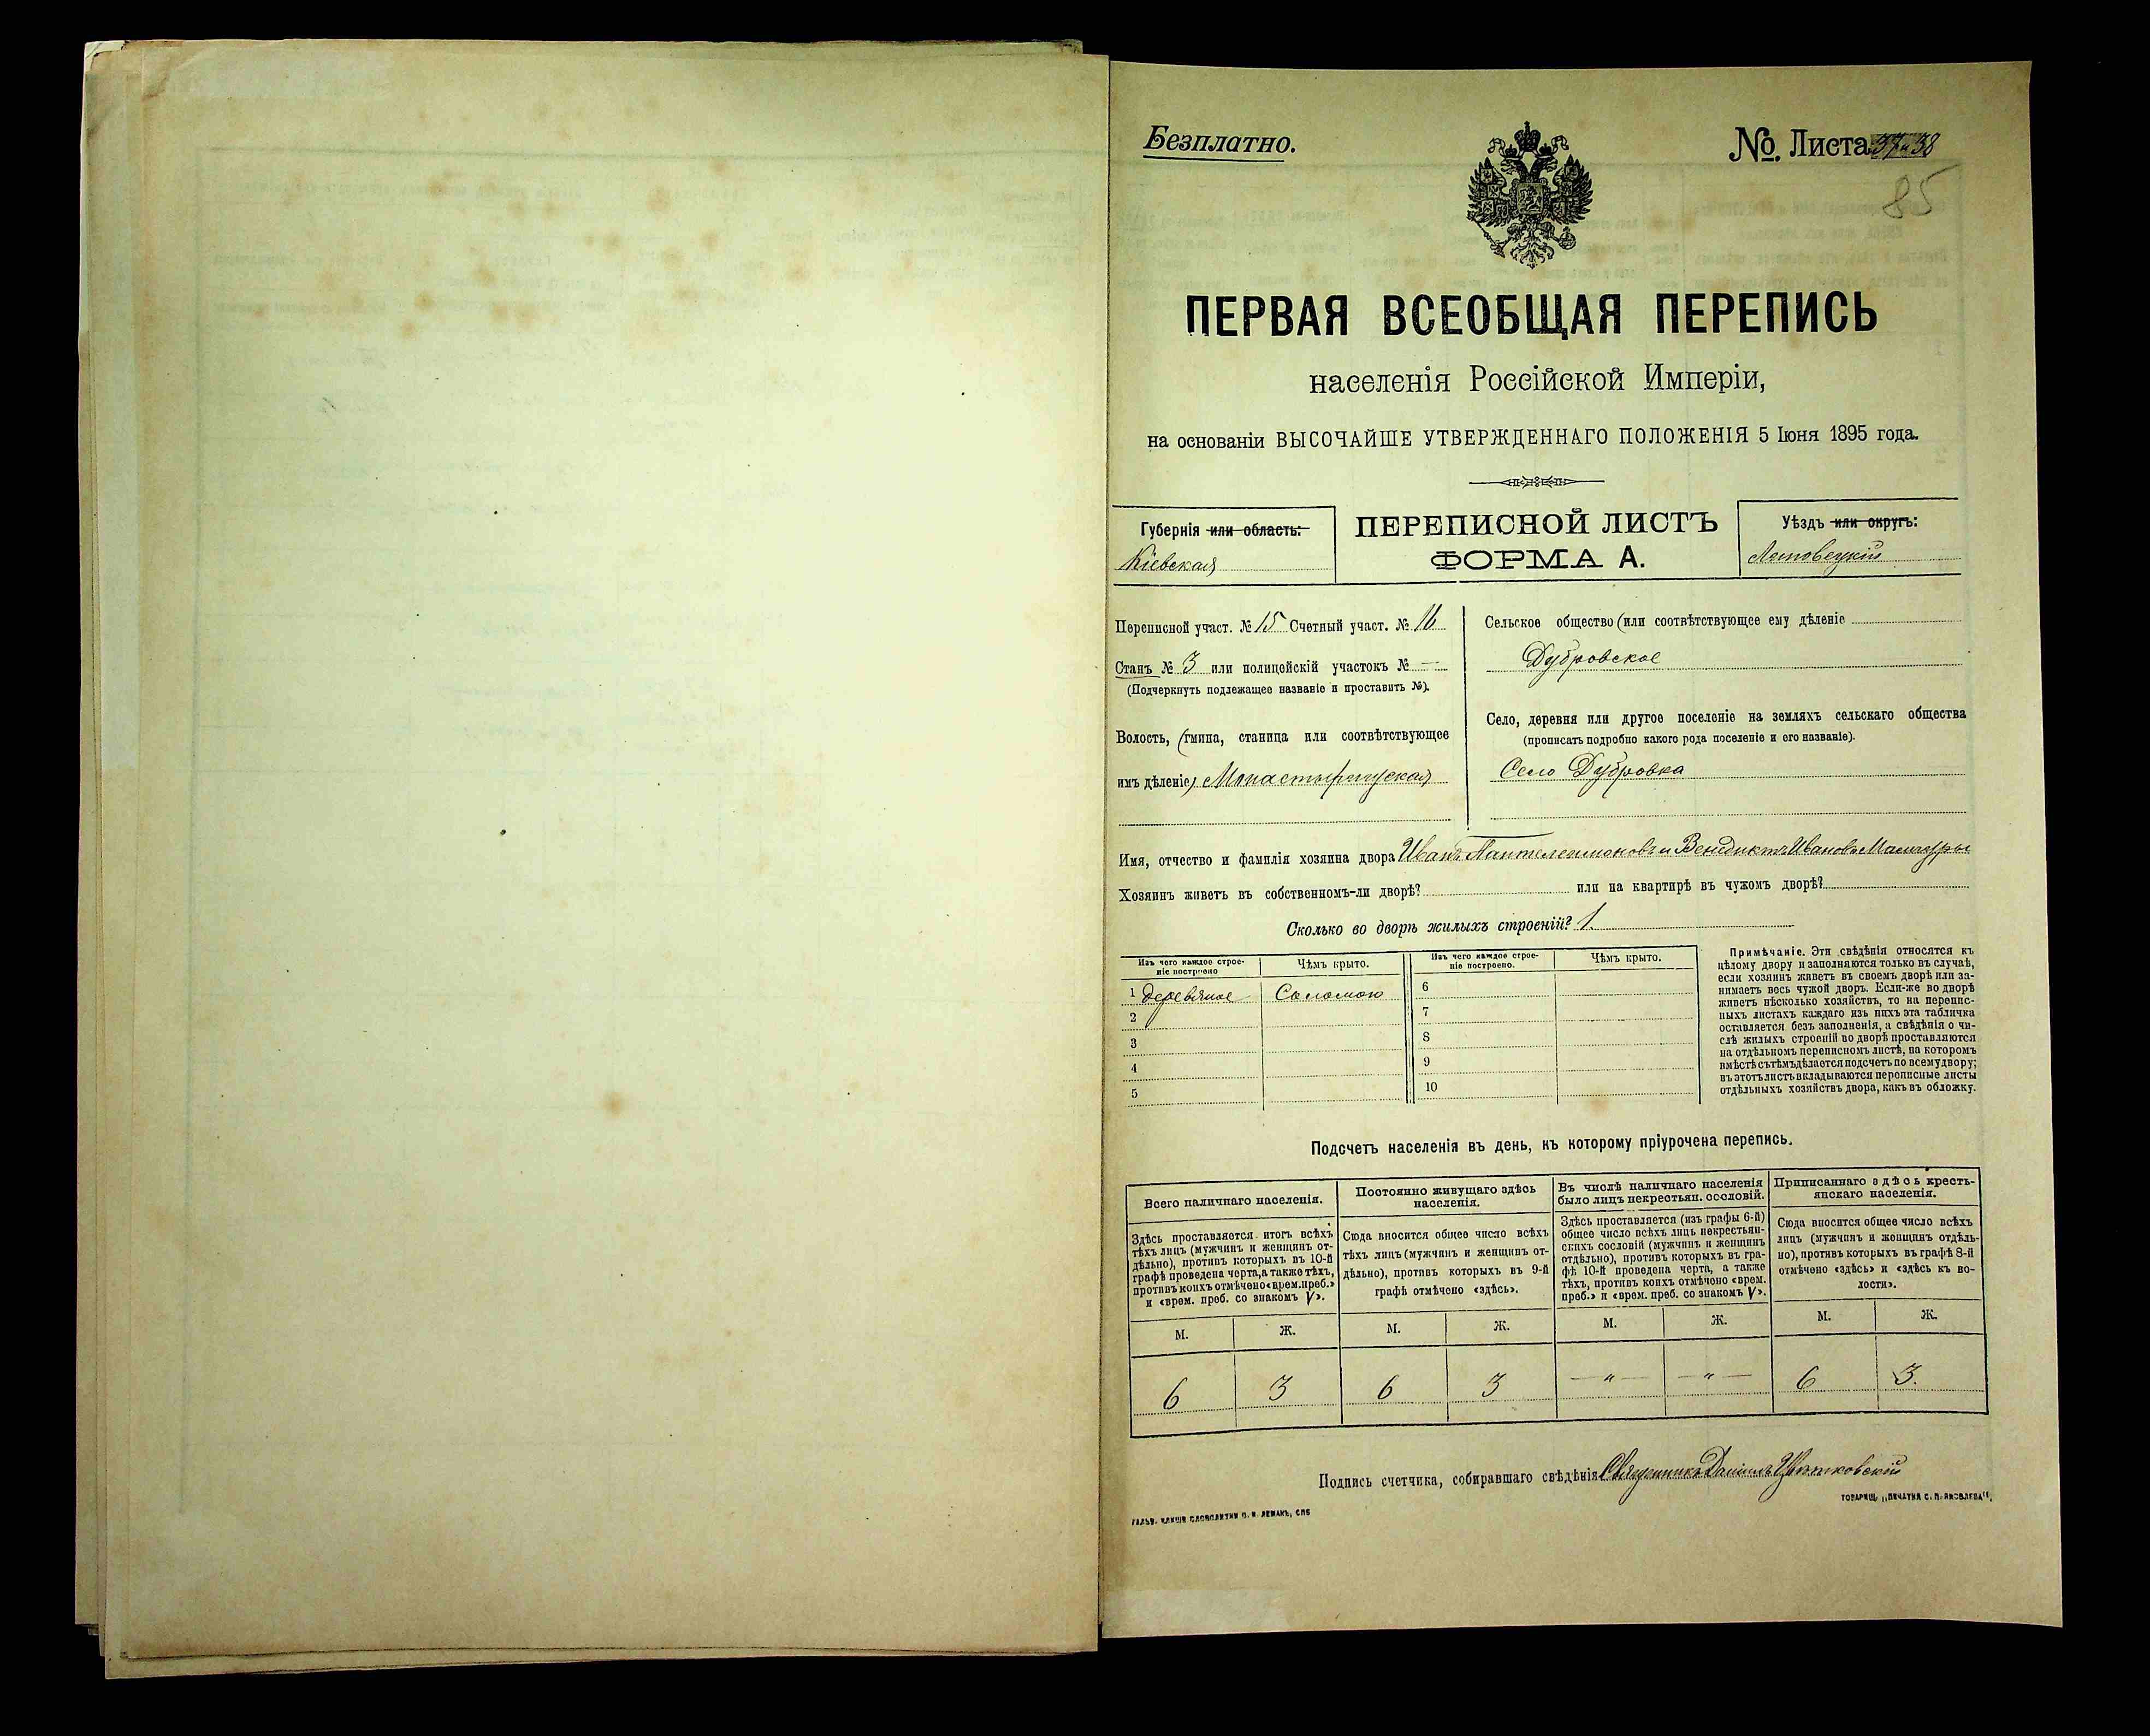 Безплатно.
№. Листа 37 и 38
85
ПЕРВАЯ ВСЕОБЩАЯ ПЕРЕПИСЬ
населенія Россійской Имперіи,
на основаніи ВЫСОЧАЙШЕ УТВЕРЖДЕННАГО ПОЛОЖЕНІЯ 5 Іюня 1895 года.
Губернія или область:
Кіевская
ПЕРЕПИСНОЙ ЛИСТЪ
ФОРМА А.
Уѣздъ или округъ:
Липовецкій
Переписной участ. № 15 Счетный участ. № 16
Станъ № 3 или полицейскій участокъ № —
(Подчеркнуть подлежащее названіе и проставить №).
Волость, (гмина, станица или соотвѣтствующее
имъ дѣленіе) Монастырищская
Сельское общество (или соотвѣтствующее ему дѣленіе
Дубровское
Село, деревня или другое поселеніе на земляхъ сельскаго общества
(прописать подробно какого рода поселеніе и его названіе).
Село Дубровка
Имя, отчество и фамилія хозяина двора Иванъ Пантелеимоновъ и Венедиктъ Ивановъ
Хозяинъ живетъ въ собственномъ-ли дворѣ? или на квартирѣ въ чужомъ дворѣ?
Сколько во дворѣ жилыхъ строеній? 1.
Изъ чего каждое строеніе построено
Чѣмъ крыто.
Изъ чего каждое строеніе построено.
Чѣмъ крыто.
1 деревяное Соломою 6
2 7
3 8
4 9
5 10
Примѣчаніе. Эти свѣдѣнія относятся къ
цѣлому двору и заполняются только въ случаѣ,
если хозяинъ живетъ въ своемъ дворѣ или за-
нимаетъ весь чужой дворъ. Если-же во дворѣ
живетъ нѣсколько хозяйствъ, то на перепис-
ныхъ листахъ каждаго изъ нихъ эта табличка
оставляется безъ заполненія, а свѣдѣнія о чи-
слѣ жилыхъ строеній во дворѣ проставляются
на отдѣльномъ переписномъ листѣ, на которомъ
вмѣстѣ съ тѣмъ дѣлается подсчетъ по всему двору;
въ этотъ листъ вкладываются переписные листы
отдѣльныхъ хозяйствъ двора, какъ въ обложку.
Подсчетъ населенія въ день, къ которому пріурочена перепись.
Всего наличнаго населенія.
Здѣсь проставляется итогъ всѣхъ
тѣхъ лицъ (мужчинъ и женщинъ от-
дѣльно), противъ которыхъ въ 10-й
графѣ проведена черта, а также тѣхъ,
противъ коихъ отмѣчено «врем. преб.»
и «врем. преб. со знакомъ V».
Постоянно живущаго здѣсь
населенія.
Сюда вносится общее число всѣхъ
тѣхъ лицъ (мужчинъ и женщинъ от-
дѣльно), противъ которыхъ въ 9-й
графѣ отмѣчено «здѣсь».
Въ числѣ наличнаго населенія
было лицъ некрестьян. сословій.
Здѣсь проставляется (изъ графы 6-й)
общее число всѣхъ лицъ некрестьян-
скихъ сословій (мужчинъ и женщинъ
отдѣльно), противъ которыхъ въ гра-
фѣ 10-й проведена черта, а также
тѣхъ, противъ коихъ отмѣчено «врем.
преб.» и «врем. преб. со знакомъ V».
Приписаннаго здѣсь кресть-
янскаго населенія.
Сюда вносится общее число всѣхъ
лицъ (мужчинъ и женщинъ отдѣль-
но), противъ которыхъ въ графѣ 8-й
отмѣчено «здѣсь» и «здѣсь къ во-
лости».
М. Ж. М. Ж. М. Ж. М. Ж.
6 3 6 3 — " — — " — 6 3.
Подпись счетчика, собиравшаго свѣдѣнія Священникъ Даніилъ
ТОВАРИЩ. „ПЕЧАТНЯ С. П. ЯКОВЛЕВА“.
ГАЛЬВ. КЛИШЕ СЛОВОЛИТНИ О. И. ЛЕМАНЪ, СПБ